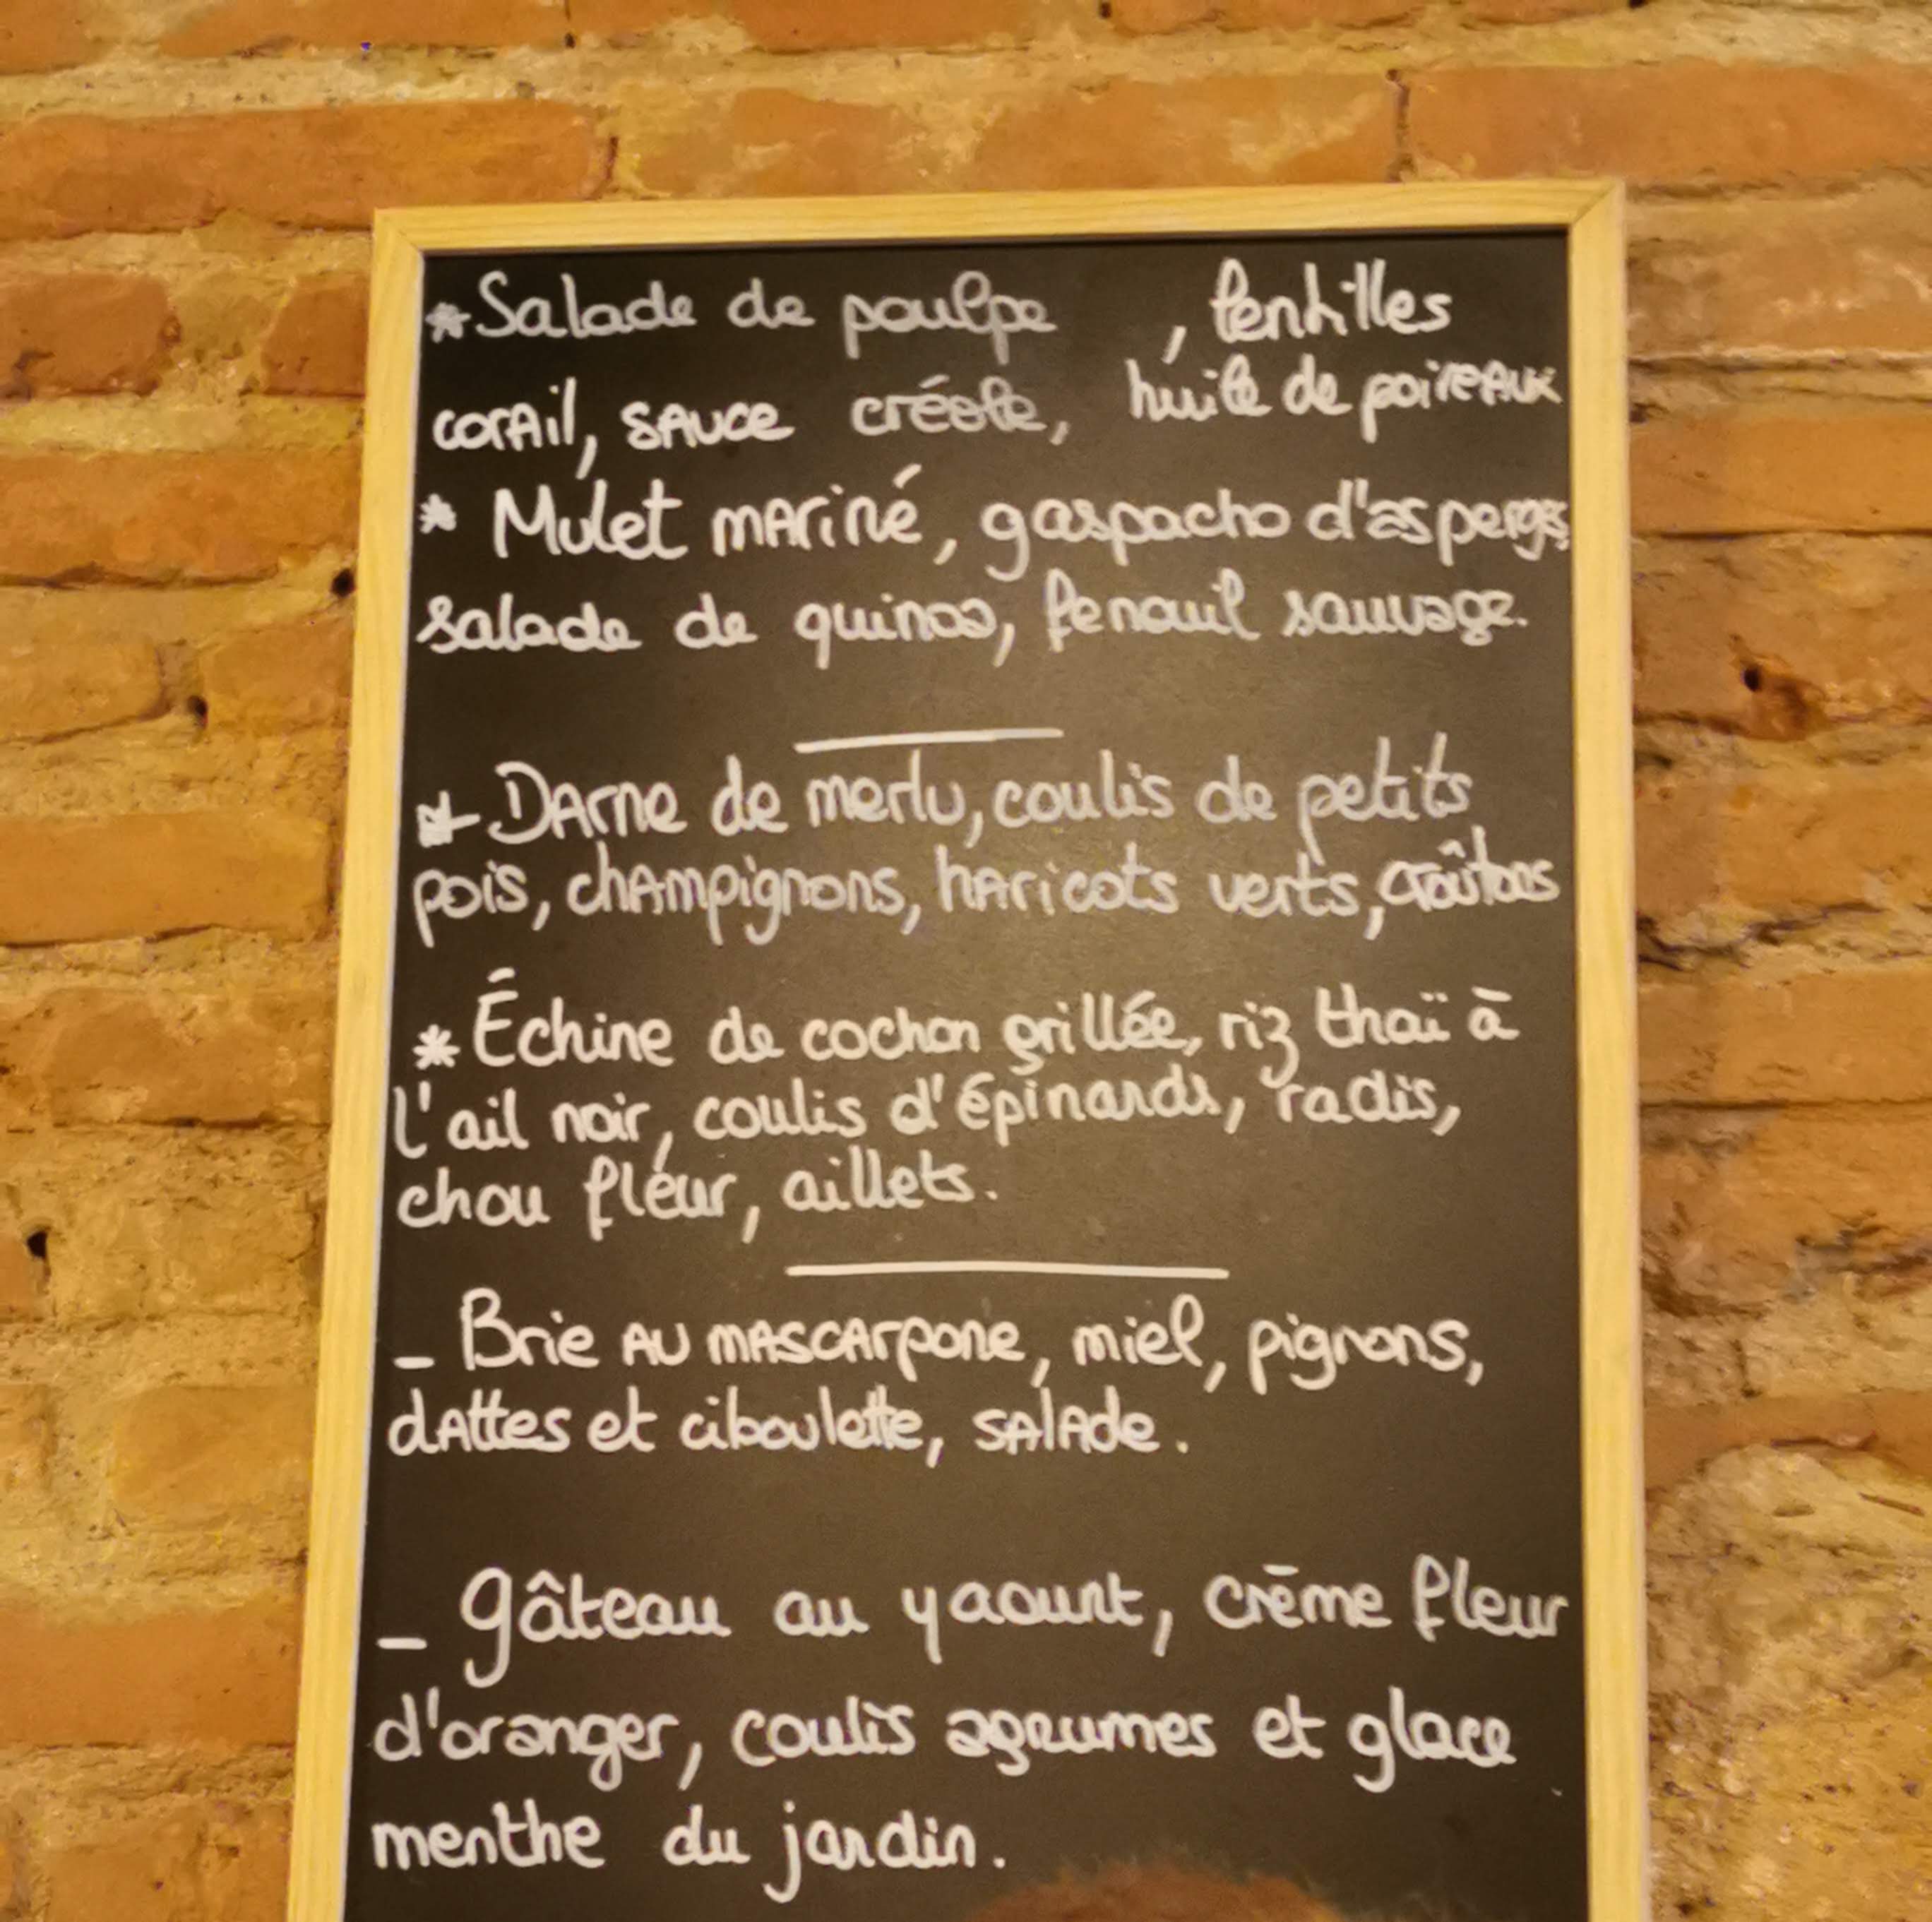 *Salade de poulpe , lentilles
corail, sauce créole, huile de poireaux
* Mulet mariné, gaspacho d'asperges,
salade de quinoa, fenouil sauvage.
* Darne de merlu, coulis de petits
pois, champignons, haricots verts, croûtons
* Échine de cochon grillée, riz thaï à
l'ail noir, coulis d'épinards, radis,
chou fleur, aillets.
- Brie au mascarpone, miel, pignons,
dattes et ciboulette, salade.
- Gâteau au yaourt, crème fleur
d'oranger, coulis agrumes et glace
menthe du jardin.